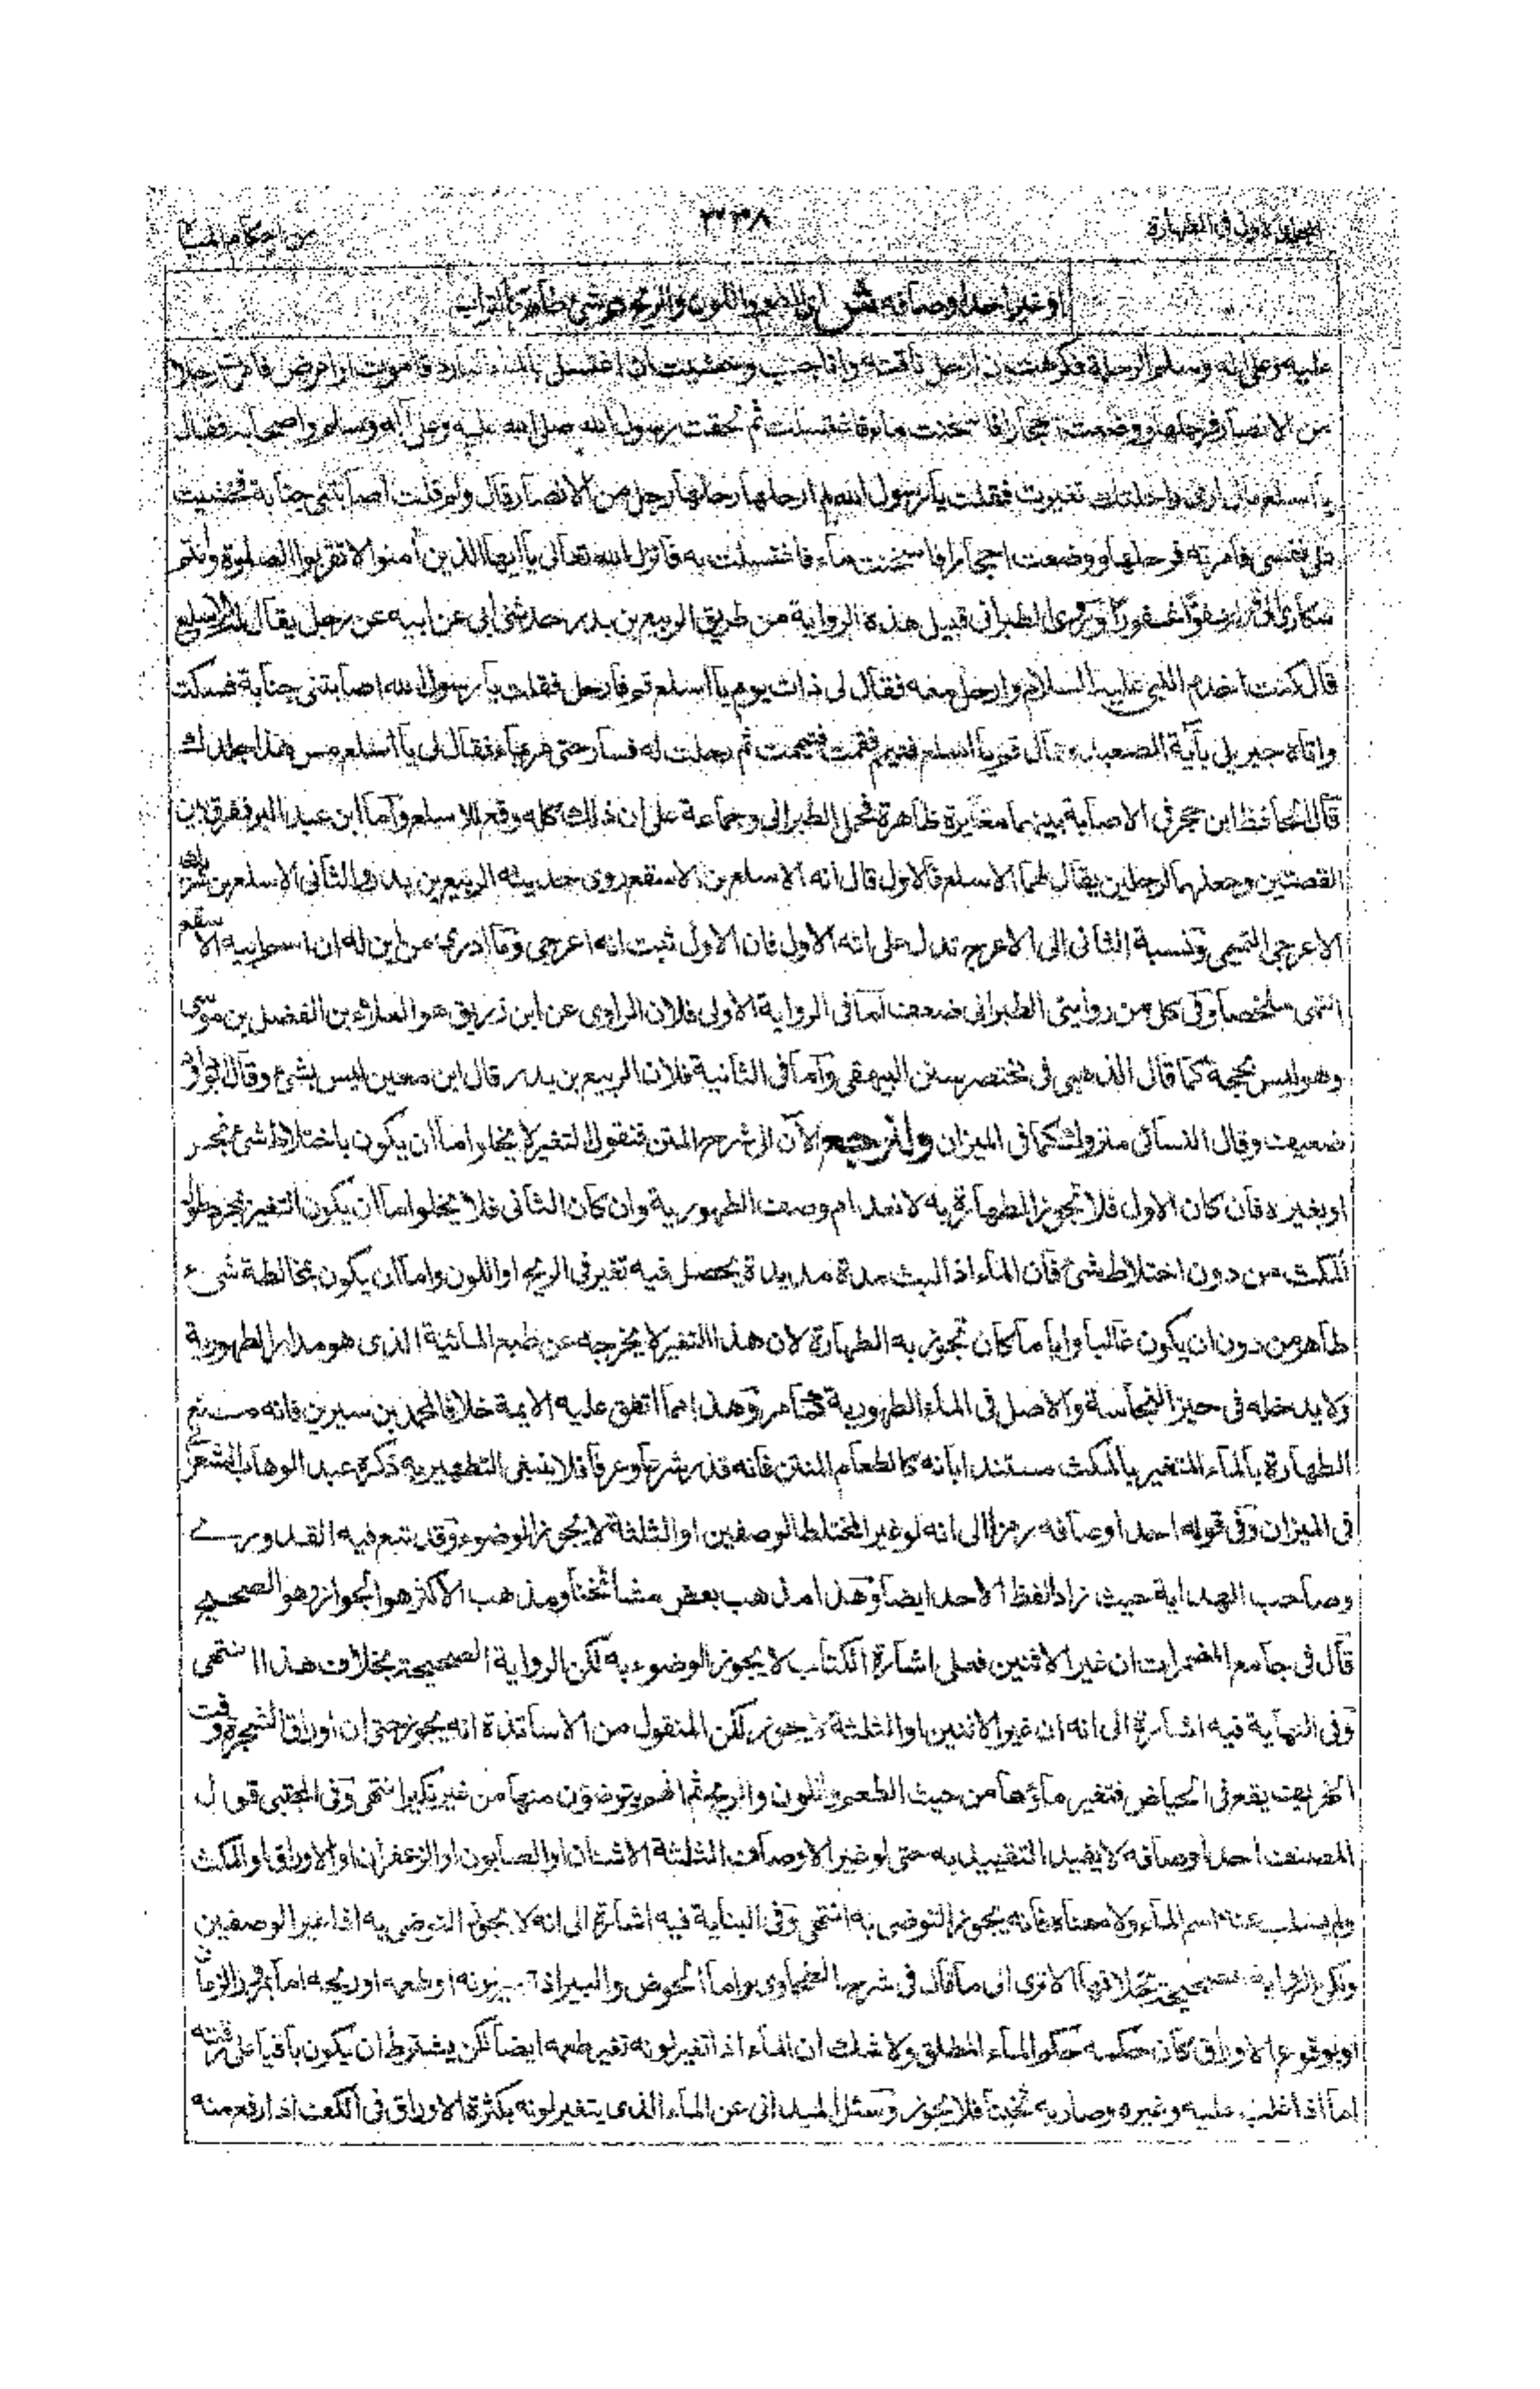 الاول في الطهارة ٣٣٨ من احكام المياه
او غير احد اوصافه ش اي الطعم واللون والريح م شئ طاهر كالتراب
عليه وعلى آله وسلم الرحلة فكرهت ان ارحل ناقته وانا جنب وخشيت ان اغتسل بالماء البارد فاموت او امرض فامرت رجلا
من الانصار فرحلها ووضعت احجارا فاسخنت ماء فاغتسلت ثم لحقت برسول الله صلى الله عليه وعلى آله وسلم واصحابه فقال
يا اسلع مالي ارى راحلتك تغيرت فقلت يا رسول الله لم ارحلها رحلها رجل من الانصار قال ولم قلت اصابتني جنابة فخشيت
على نفسي فامرته فرحلها ووضعت احجارا فاسخنت ماء فاغتسلت به فانزل الله تعالى يا ايها الذين آمنوا لا تقربوا الصلوة وانتم
سكارى الى عفوا غفورا وروى الطبراني قبيل هذه الرواية من طريق الربيع بن بدر حدثني ابي عن ابيه عن رجل يقال له الاسلع
قال كنت اخدم النبي عليه السلام وارحل معه فقال لي ذات يوم يا اسلع قم فارحل فقلت يا رسول الله اصابتني جنابة فسكت
واتاه جبريل بآية الصعيد فقال قم يا اسلع فتيمم فقمت فتيممت ثم رحلت له فسار حتى مر بماء فقال لي يا اسلع مس هذا جلدك
قال الحافظ ابن حجر في الاصابة بينهما مغايرة ظاهرة فحمل الطبراني وجماعة على ان ذلك كله وقع للاسلع واما ابن عبد البر ففرق بين
القصتين وجعلهما لرجلين يقال لهما الاسلع فالاول قال انه الاسلع بن الاسقع روى حديثه الربيع بن بدر والثاني الاسلع بن شريك
الاعرجي التميمي ونسبة الثاني الى الاعرج تدل على انه الاول فان الاول ثبت انه اعرجي وما ادري من اين له ان اسم ابيه الاسقع
انتهى ملخصا وفي كل من روايتي الطبراني ضعف اما في الرواية الاولى فلان الراوي عن ابن زريق هو العلاء بن الفضل بن موسى
وهو ليس بحجة كما قال الذهبي في مختصر سنن البيهقي واما في الثانية فلان الربيع بن بدر قال ابن معين ليس بشئ وقال ابو داؤد
ضعيف وقال النسائي متروك كما في الميزان ولنرجع الآن الى شرح المتن فنقول التغير لا يخلو اما ان يكون باختلاط شئ نجس
او بغيره فان كان الاول فلا تجوز الطهارة به لانعدام وصف الطهورية وان كان الثاني فلا يخلو اما ان يكون التغير بمجرد طول
المكث من دون اختلاط شئ فان الماء اذا لبث مدة مديدة يحصل فيه تغير في الريح او اللون واما ان يكون بمخالطة شئ
طاهر من دون ان يكون غالبا وايا ما كان تجوز به الطهارة لان هذا التغير لا يخرجه عن طبع المائية الذي هو مدار الطهورية
ولا يدخله في حيز النجاسة والاصل في الماء الطهورية كما مر وهذا مما اتفق عليه الايمة خلافا لمحمد بن سيرين فانه منع
الطهارة بالماء المتغير بالمكث مستندا بانه كالطعام المنتن فانه قذر شرعا وعرفا فلا ينبغي التطهير به ذكره عبد الوهاب الشعراني
في الميزان وفي قوله احد اوصافه رمز الى انه لو غير المختلط الوصفين او الثلثة لا يجوز الوضوء وقد تبع فيه القدوري
وصاحب الهداية حيث زاد لفظ الاحد ايضا وهذا مذهب بعض مشائخنا ومذهب الاكثر هو الجواز وهو الصحيح
قال في جامع المضمرات ان غير الاثنين فعلى اشارة الكتاب لا يجوز الوضوء به لكن الرواية الصحيحة بخلاف هذا انتهى
وفي النهاية فيه اشارة الى انه ان غير الاثنين او الثلثة لا يجوز لكن المنقول من الاساتذة انه يجوز حتى ان اوراق الشجرة وقت
الخريف يقع في الحياض فتغير ماؤها من حيث الطعم واللون والريح ثم انهم يتوضؤن منها من غير نكير انتهى وفي المجتبى قول
المصنف احد اوصافه لا يفيد التقييد به حتى لو غير الاوصاف الثلثة الاشنان او الصابون او الزعفران او الاوراق او المكث
ولم يسلب عنه اسم الماء ولا معناه فانه يجوز التوضي به انتهى وفي البناية فيه اشارة الى انه لا يجوز التوضي به اذا غير الوصفين
ولكن الرواية الصحيحة بخلافها الا ترى الى ما قال في شرح الطحاوي واما الحوض والبير اذا تغير لونه او طعمه او ريحه اما بمرور الزمان
او بوقوع الاوراق كان حكمه حكم الماء المطلق ولا شك ان الماء اذا تغير لونه تغير طعمه ايضا لكن يشترط ان يكون باقيا على رقته
اما اذا غلب عليه وغيره وصار به ثخينا فلا يجوز وسئل الميداني عن الماء الذي يتغير لونه بكثرة الاوراق في الكف اذا رفع منه